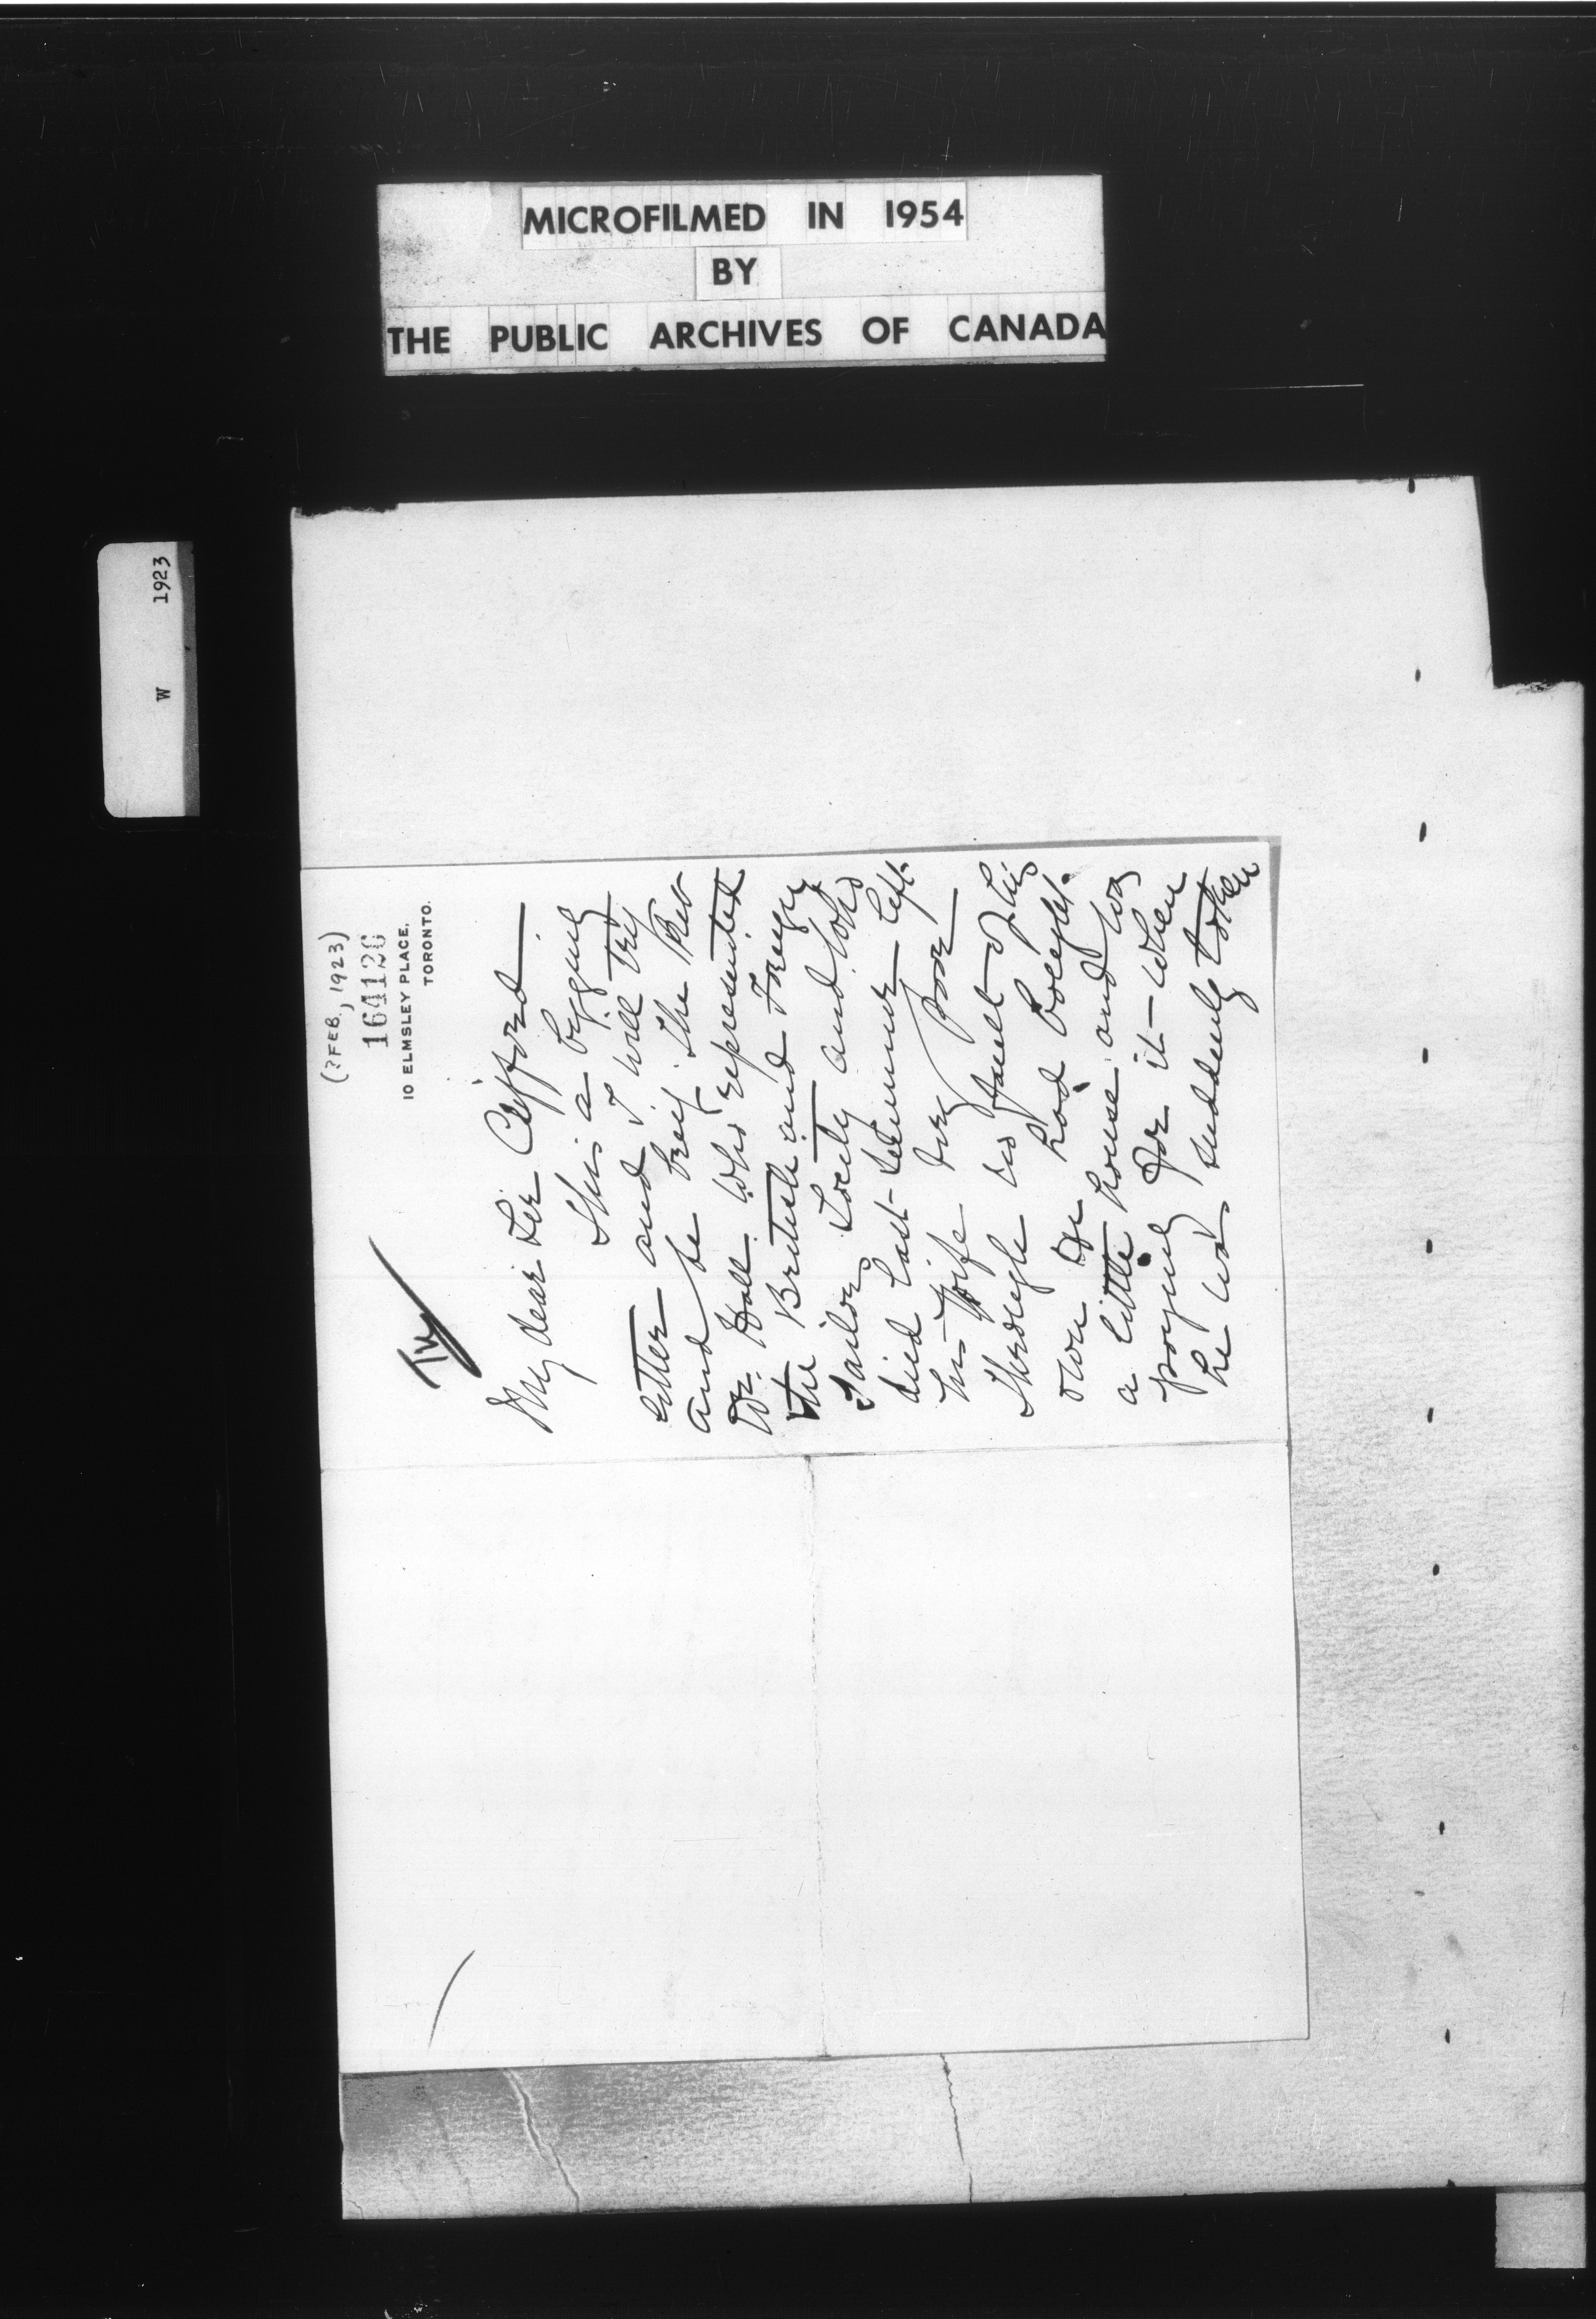 MICROFILMED IN 1954
BY
THE PUBLIC ARCHIVES OF CANADA
W 1923
(?FEB, 1923)
164126
10 ELMSLEY PLACE,
TORONTO.
My dear Sir Clifford —
This is a begging
letter and I will try
and be brief. The Rev
Dr. Hall who represented
the British and Foreign
Sailors Society and who
died last summer left
his wife very poor —
Through no fault of his
own. He had bought
a little house and was
paying for it — when
he was suddenly taken